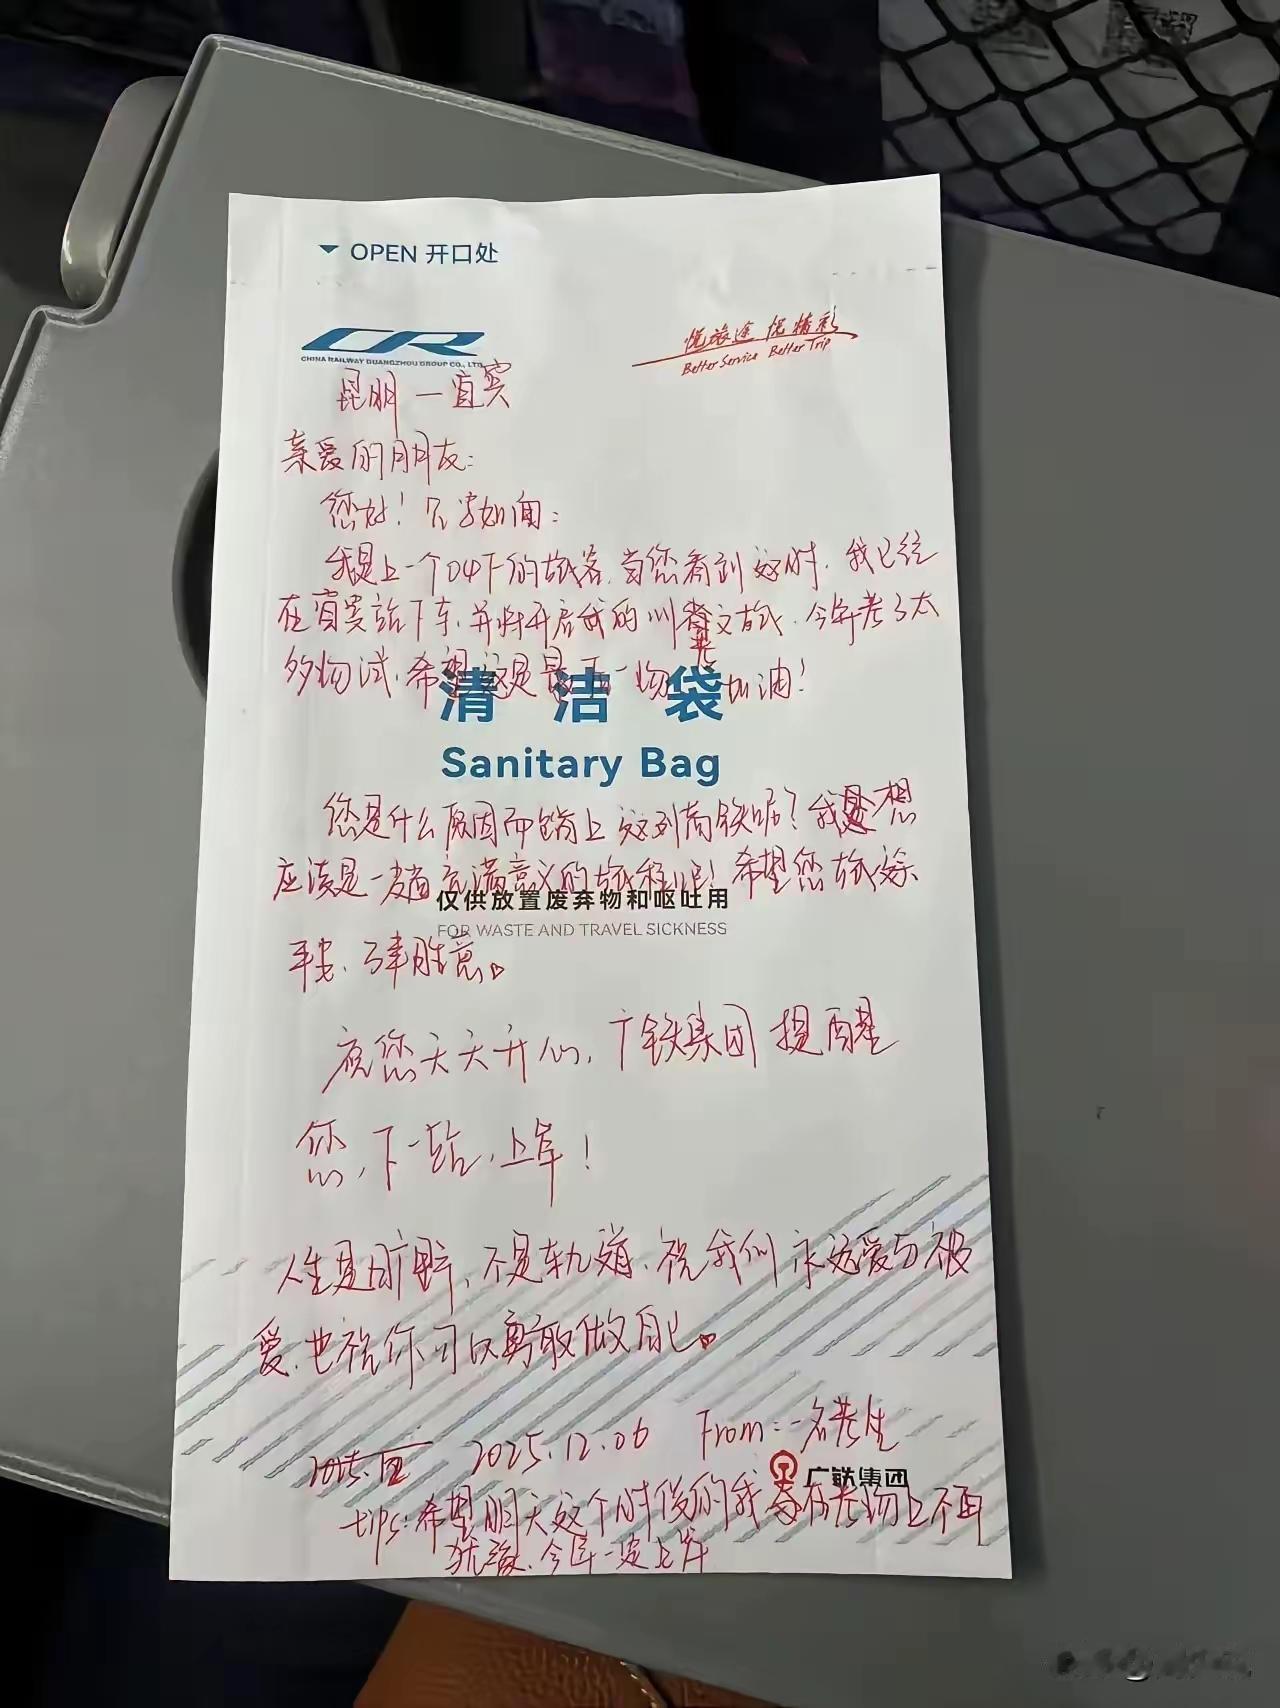 OPEN 开口处
CR
CHINA RAILWAY GUANGZHOU GROUP CO., LTD.
悦旅途 悦精彩
Better Service Better Trip
昆明—宜宾
亲爱的朋友:
您好!见字如面:
我是上一个04下的旅客,当您看到这时,我已经
在宜宾站下车,并将开启我的川 之旅,今年考了太
多场试,希望这是最后一场 加油!
清洁袋
Sanitary Bag
您是什么原因而踏上这列高铁呢?我想
应该是一趟充满意义的旅程吧!希望您旅途
仅供放置废弃物和呕吐用
FOR WASTE AND TRAVEL SICKNESS
平安、万事胜意。
祝您天天开心,广铁集团提醒
您,下一站,上岸!
人生是旷野,不是轨道,祝我们永远爱与被
爱,也祝你可以勇敢做自己。
2025.12.06 From:一名考生
广铁集团
tips:希望明天这个时候的我在考场上不再
犹豫,今年一定上岸